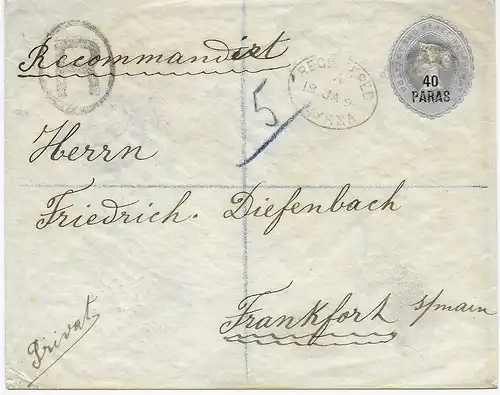 Recommandirt
R
REGISTERED
18 JA 9
SMYRNA
40
PARAS
5
Herrn
Friedrich. Diefenbach
Frankfort s/main
Privat